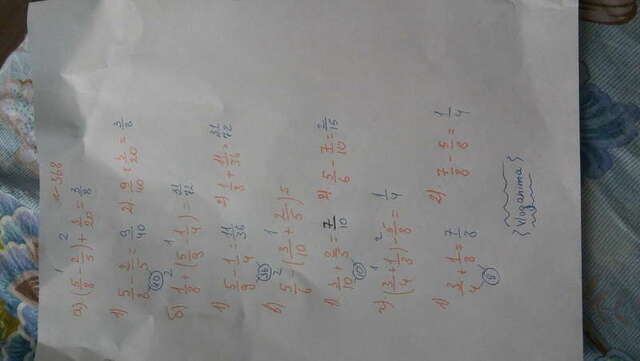 1 2 №368
а) (5/8 - 2/5) + 3/20 = 3/8
1) 5/8 - 2/5 = 9/40 2) 9/40 + 3/20 = 3/8
40
2 1
б) 1/8 + (5/9 - 1/4) = 31/72
1) 5/9 - 1/4 = 11/36 2) 1/8 + 11/36 = 31/72
36
2 1
в) 5/6 - (3/10 + 2/5) =
1) 3/10 + 2/5 = 7/10 2) 5/6 - 7/10 = 2/15
10
1 2
г) (3/4 + 1/8) - 5/8 = 1/4
1) 3/4 + 1/8 = 7/8 2) 7/8 - 5/8 = 1/4
8
{Vloganima}